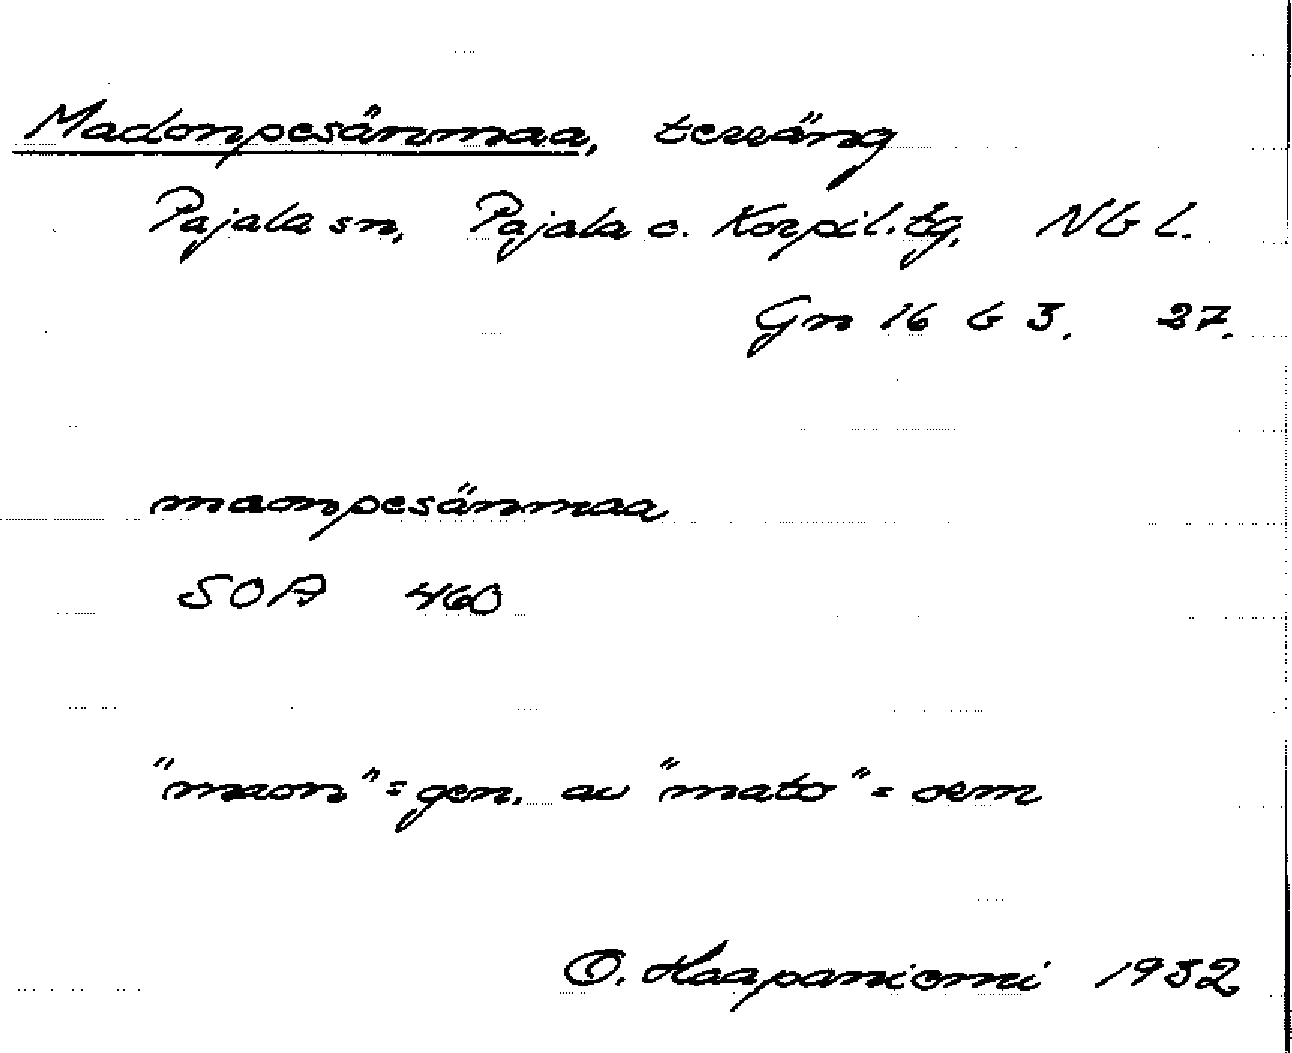 Madonpesänmaa, terräng
Pajala sn, Pajala o. Korpil. tg, Nb l.
Gn 16 b 3. 27.
maonpesänmaa
SOA 460
"maon" = gen. av "mato" = orm
O. Haapaniemi 1932